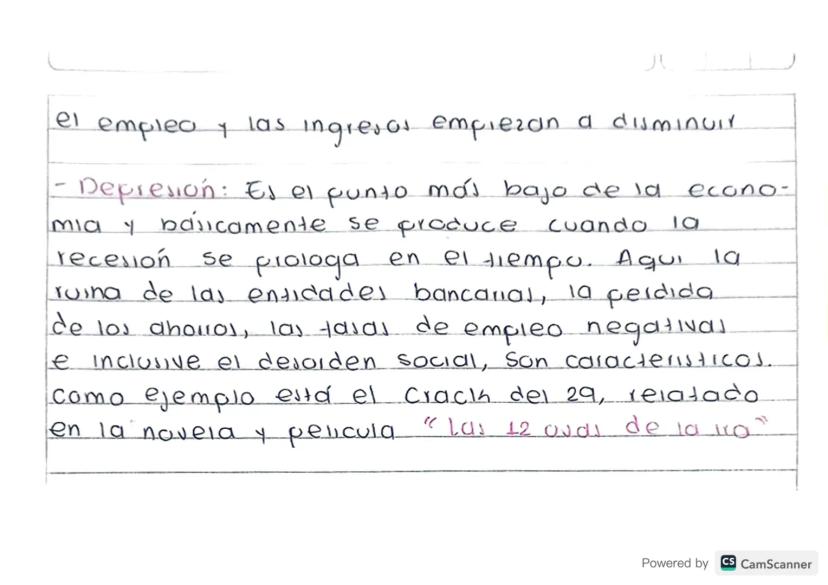 el empleo y las ingresos empiezan a disminuir
- Depresión: Es el punto más bajo de la econo-
mia y básicamente se produce cuando la
recesión se prologa en el tiempo. Aqui la
ruina de las entidades bancarias, la perdida
de los ahorros, las tasas de empleo negativas
e inclusive el desorden social, son caracteristicos.
como ejemplo está el Crack del 29, relatado
en la novela y pelicula "Las 12 uvas de la ira"
Powered by CS CamScanner